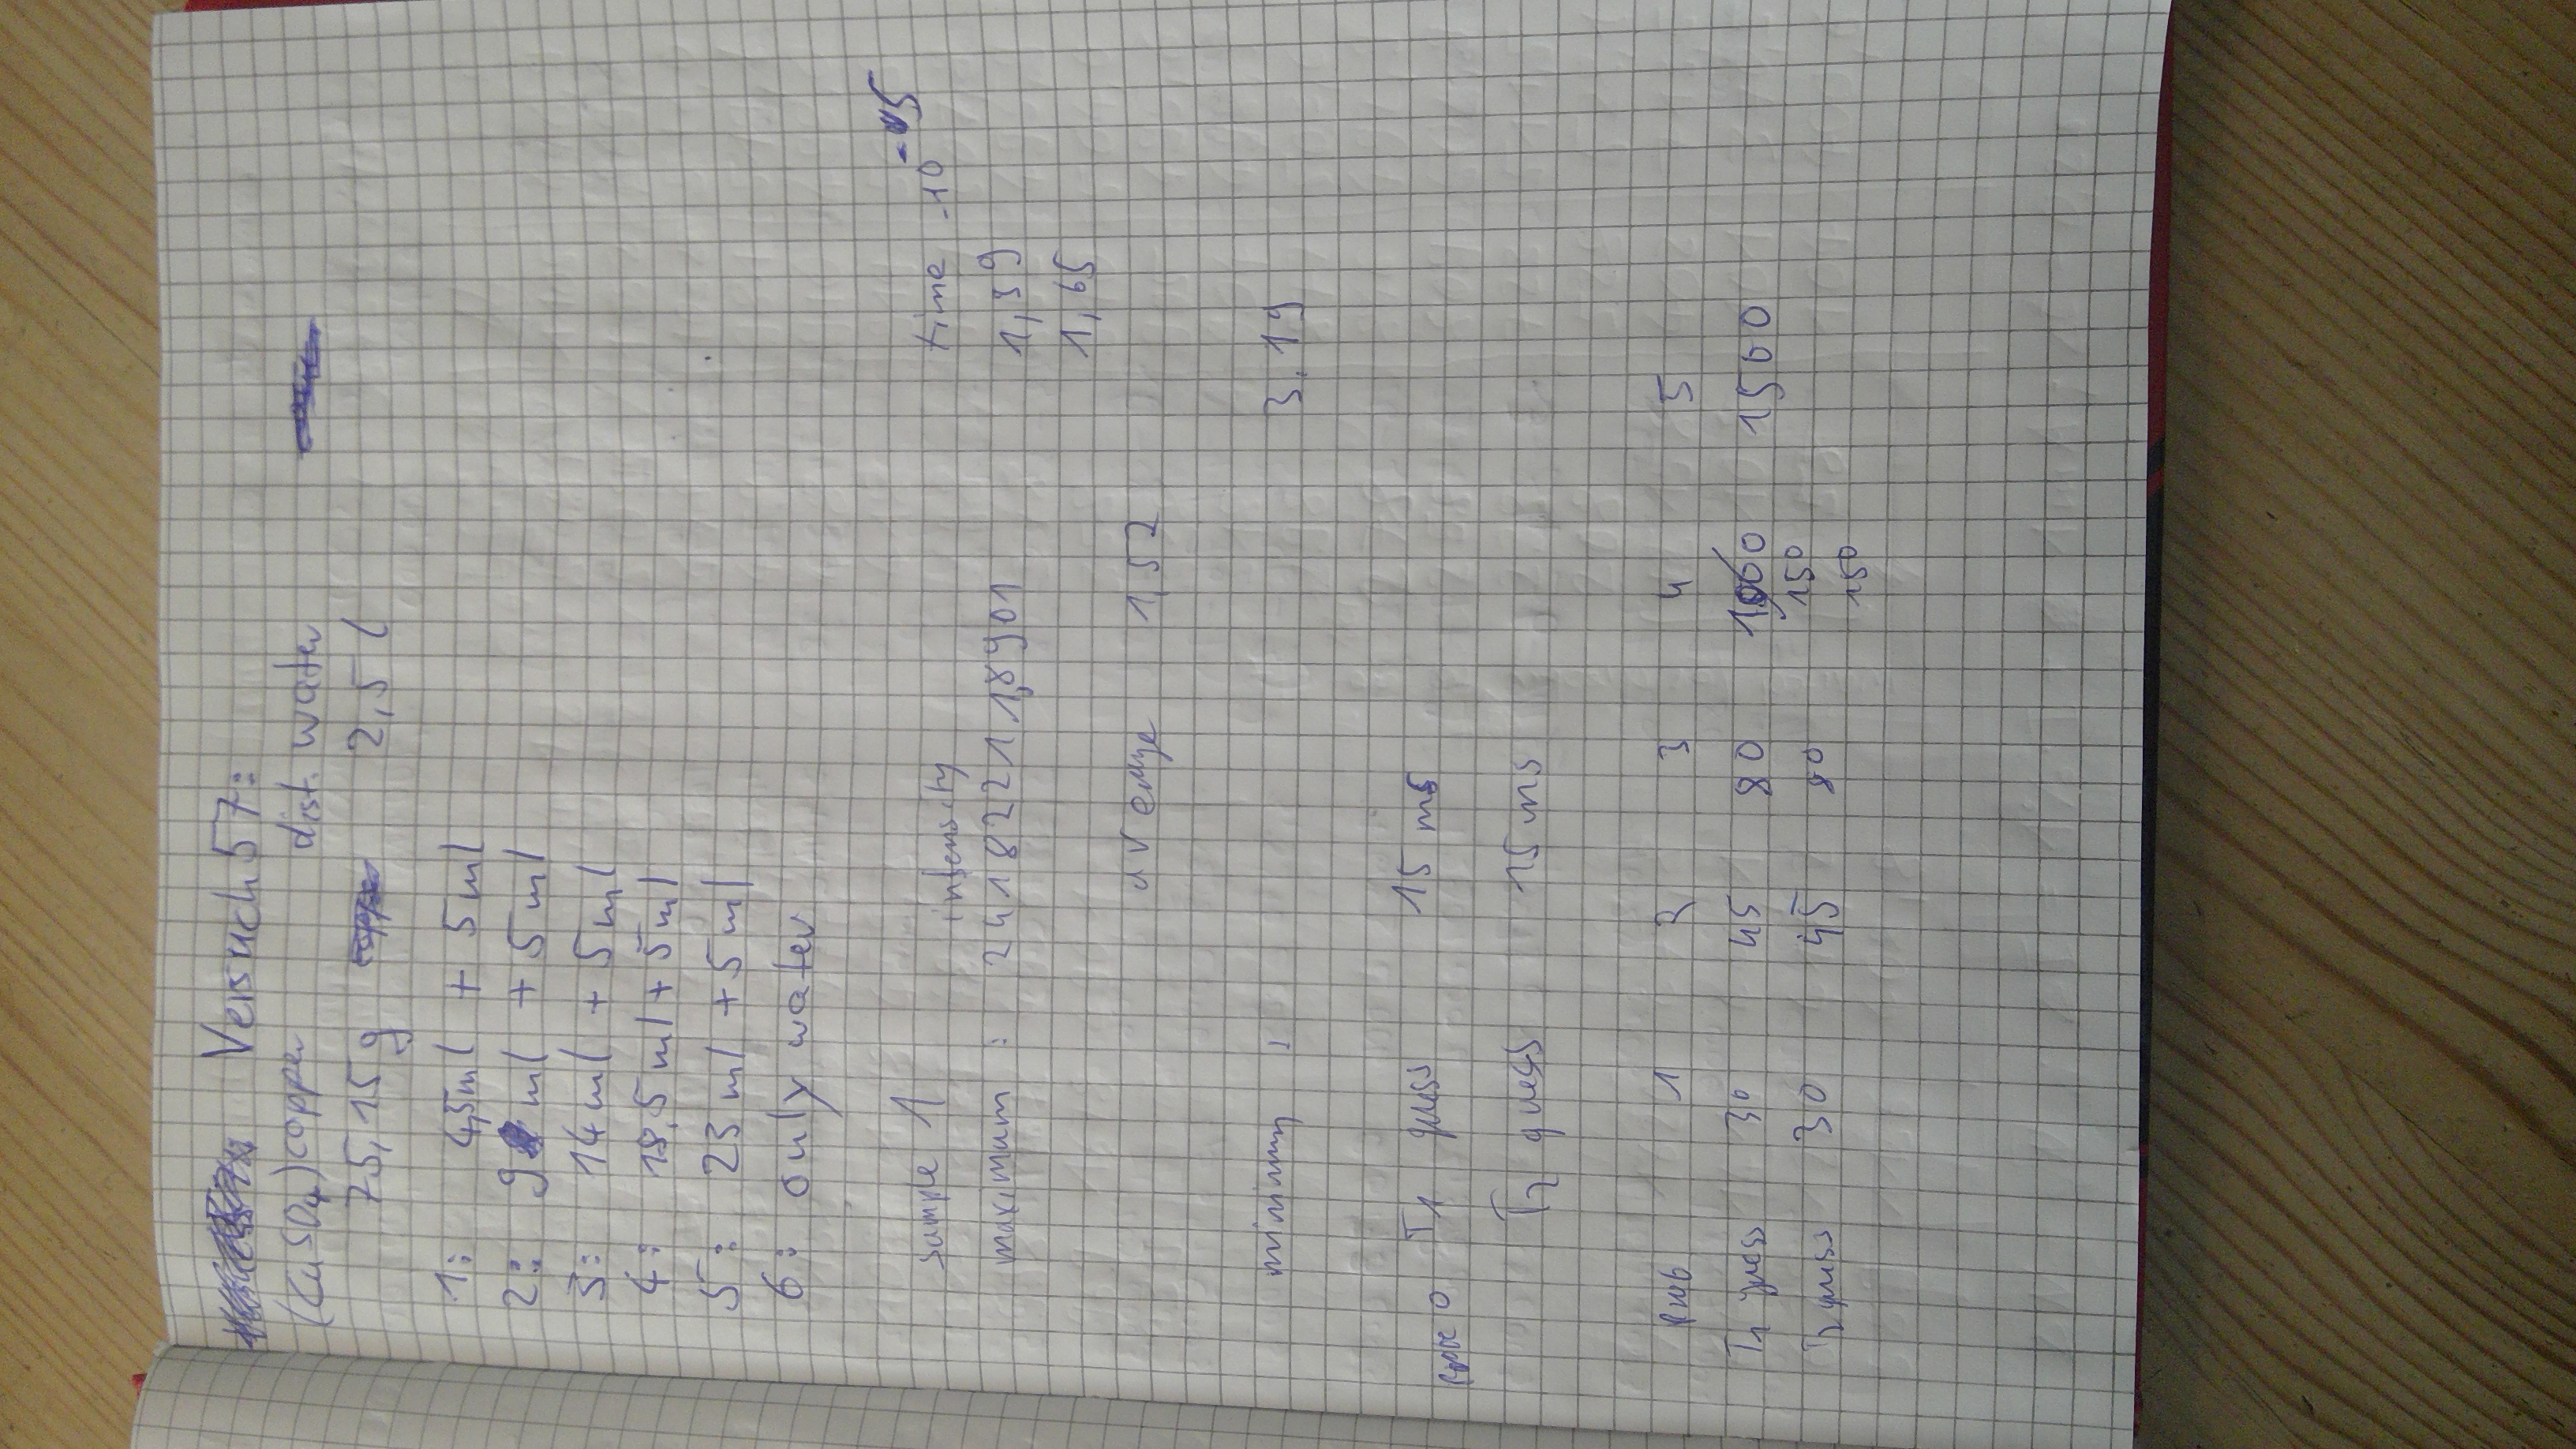 Versuch 57:
(CuSO4) copper dist. water
75,15 g 2,5 l
1: 4,5 ml + 5 ml
2: 9 ml + 5 ml
3: 14 ml + 5 ml
4: 18,5 ml + 5 ml
5: 23 ml + 5 ml
6: only water
sample 1 intensity time ·10
maximum : 24182211,8901 1,39
1,65
average 1,52
minimum : 3,19
T1 guess 15 ms
T2 guess 15 ms
1 2 3 4 5
T1 guess 30 45 80 1500
150
T2 guess 30 45 80 150